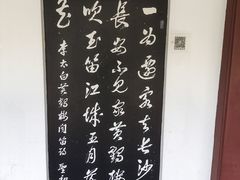 一为迁客去长沙
长安不见家黄鹤楼
吹玉笛江城五月落
花
李太白黄鹤楼闻笛诗